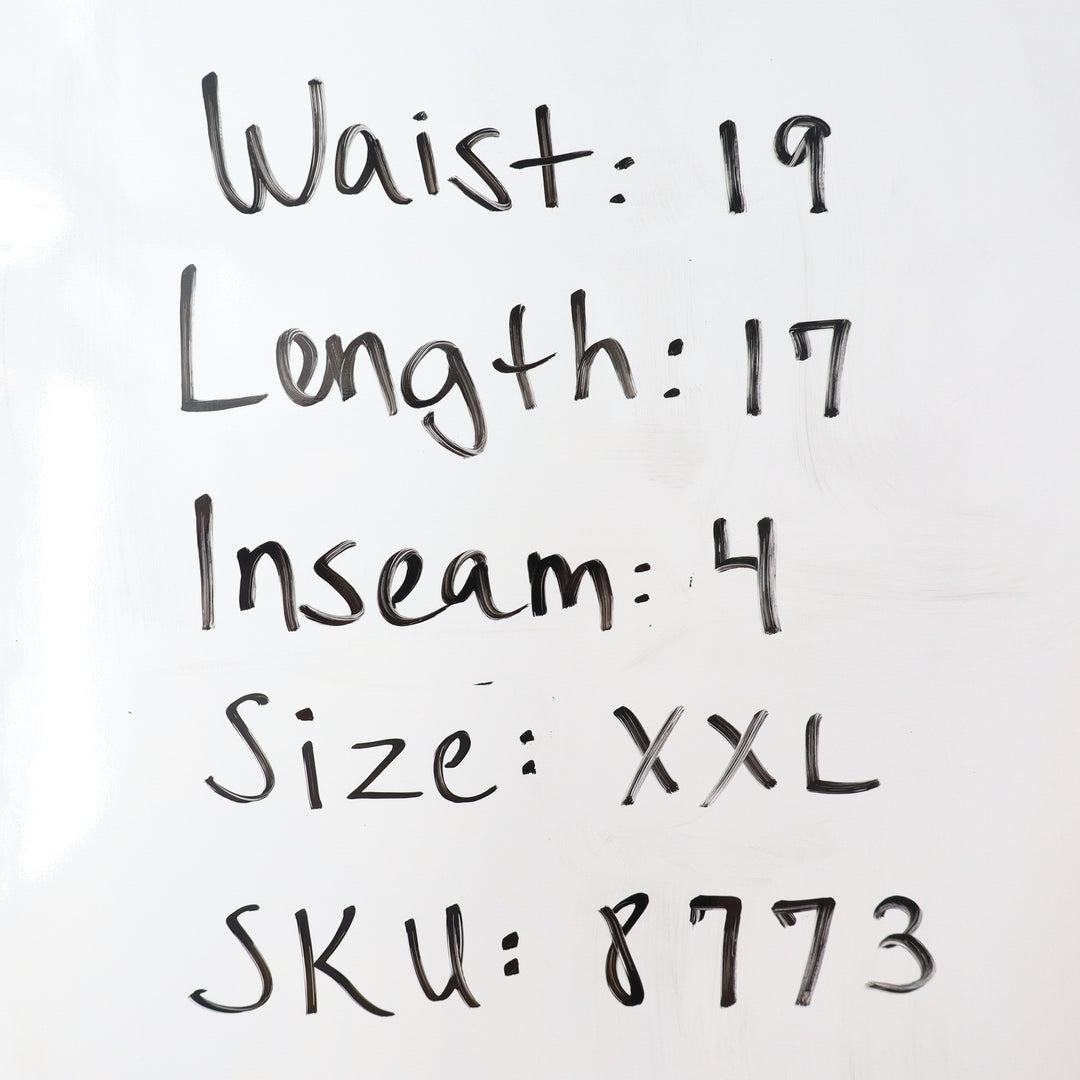 Waist: 19
Length: 17
Inseam: 4
Size: XXL
SKU: 8773